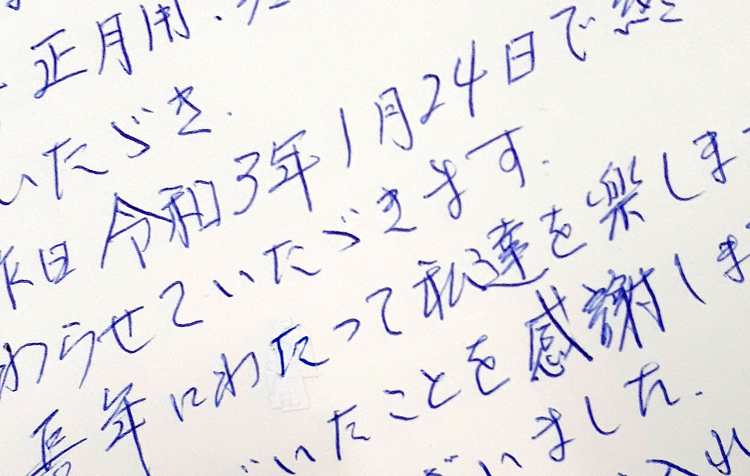 正月用、
いたゞき、
昨日 令和3年1月24日で終
わらせていたゞきます。
長年にわたって私達を楽しま
ゞいたことを感謝しま
いました。